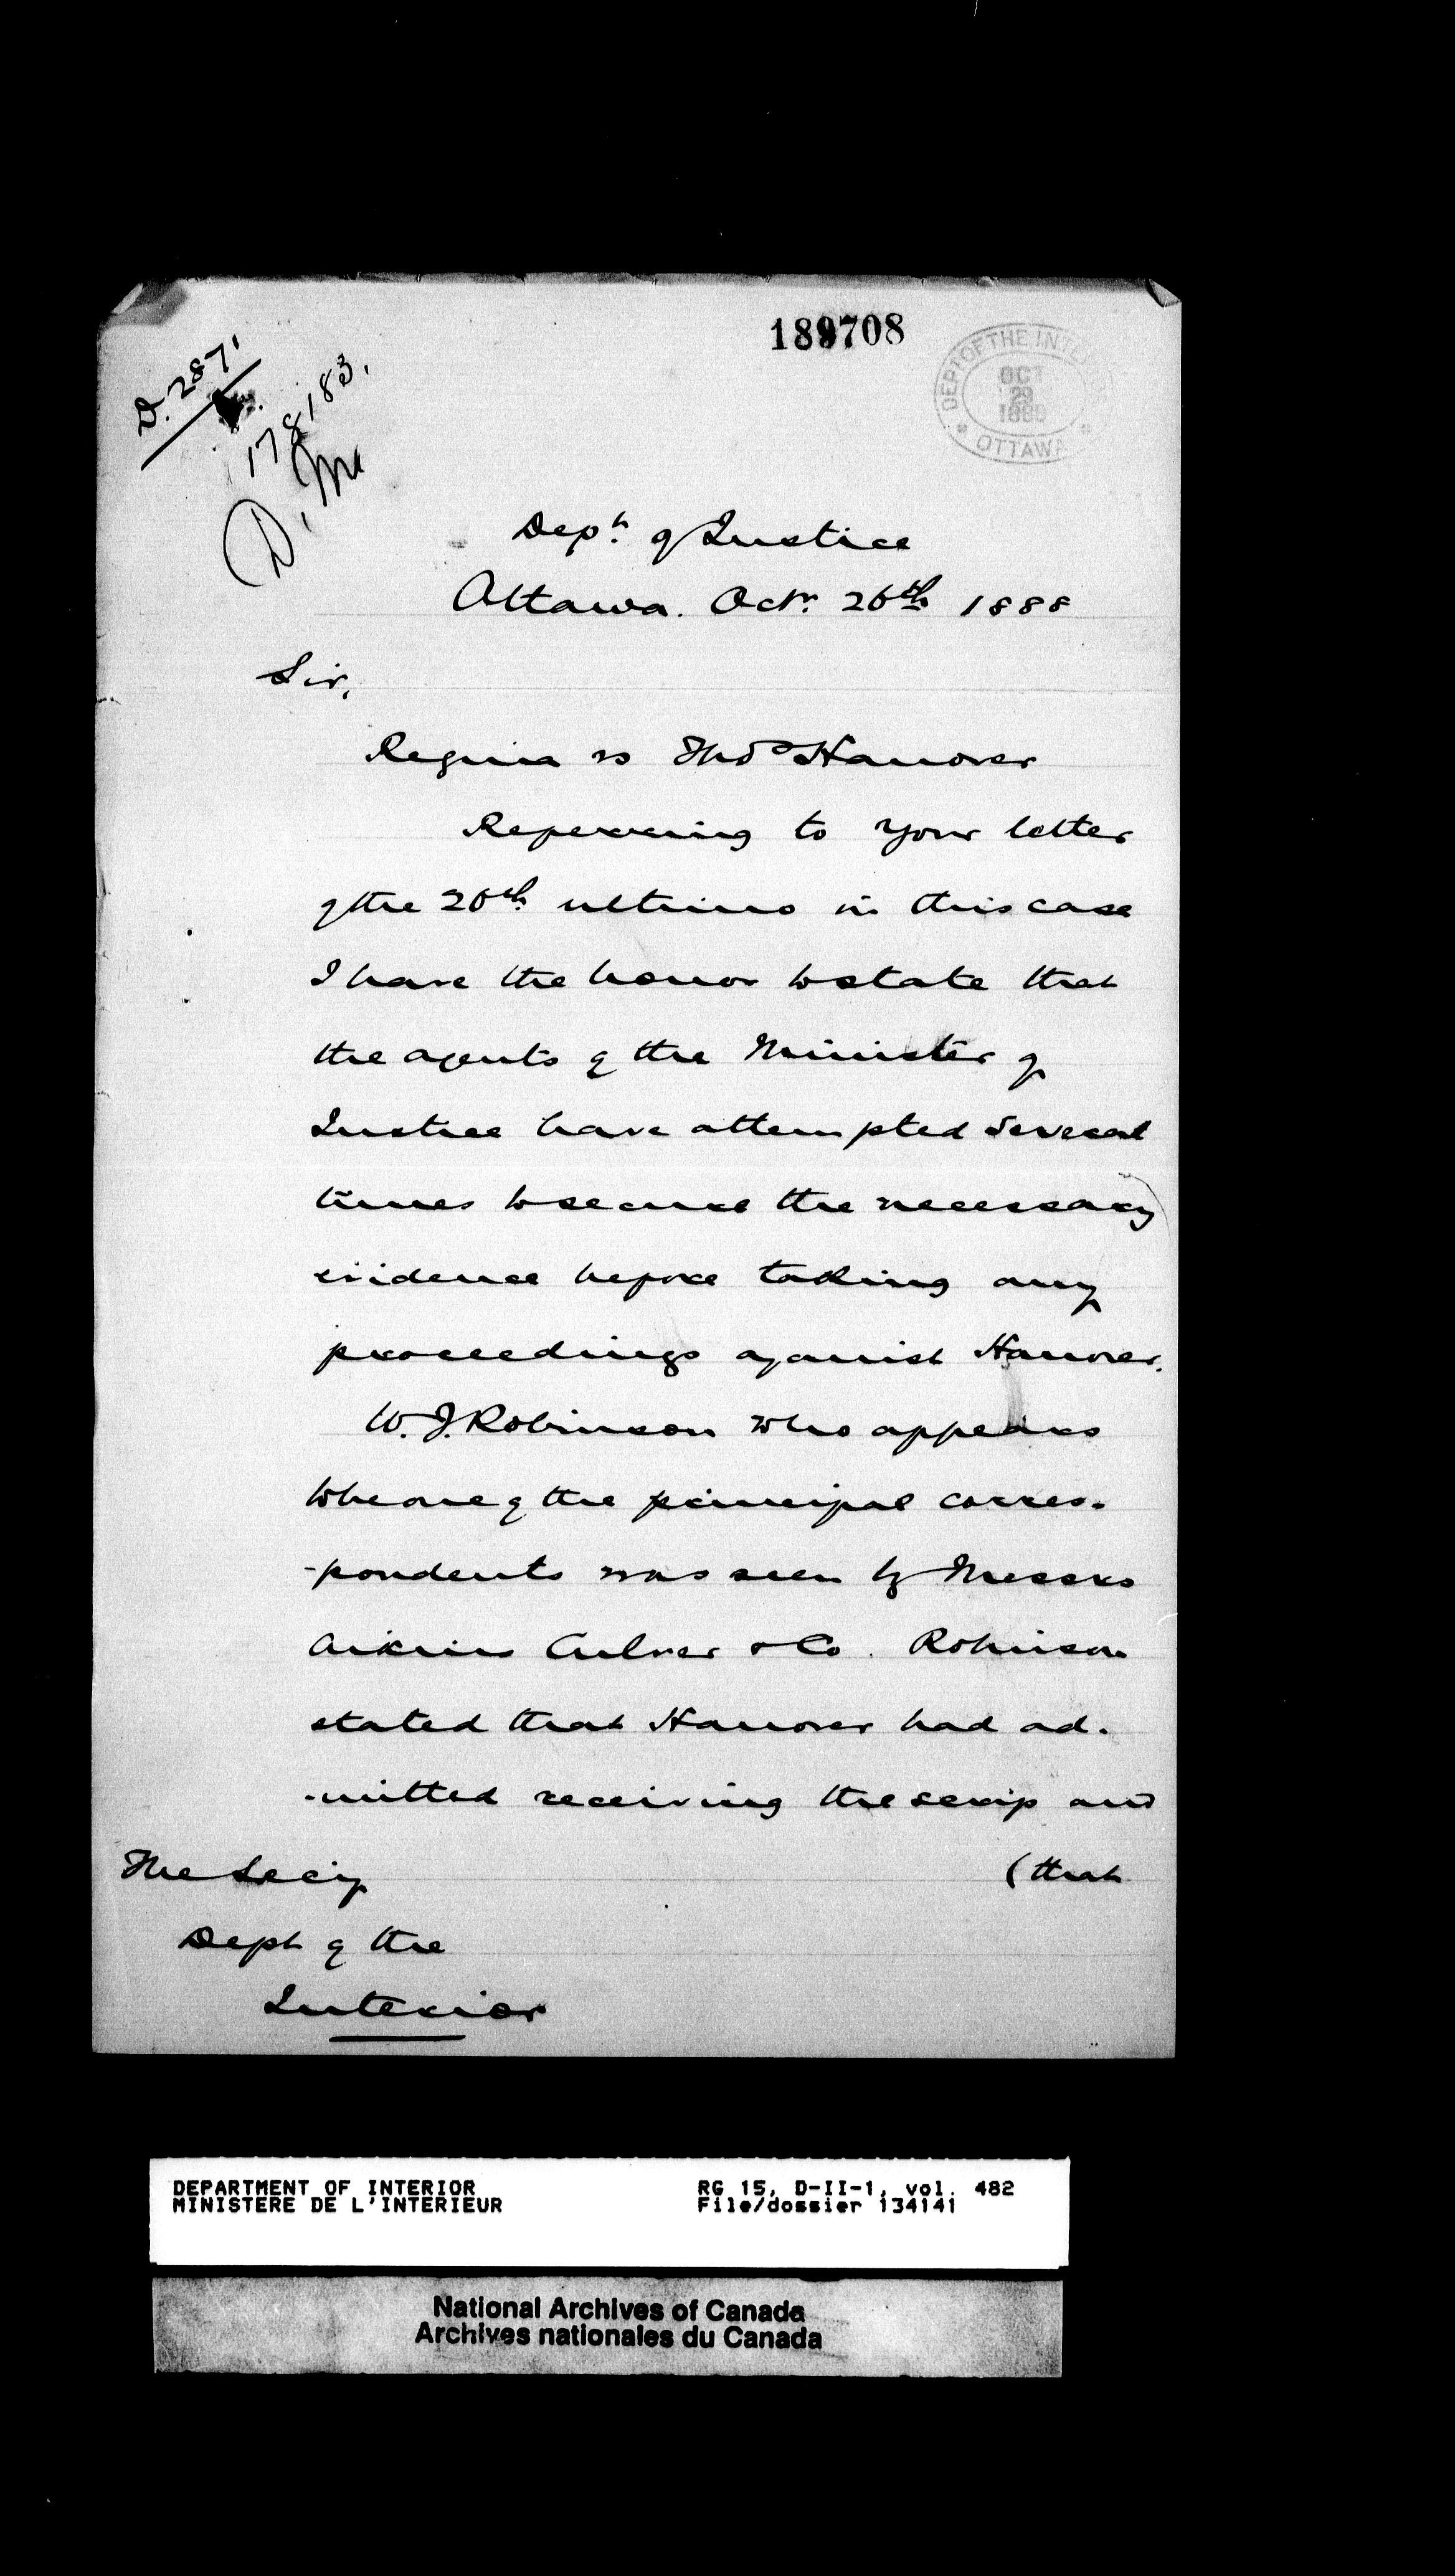 189708
DEPT OF THE INTERIOR
OCT
29
1888
OTTAWA
D. 2871
178183.
Dept. of Justice
Ottawa. Octr. 26th 1888
Sir,
Regina vs Thos Hanover
Referring to your letter
of the 20th ultimo in this case
I have the honor to state that
the agents of the Minister of
Justice have attempted several
times to secure the necessary
evidence before taking any
proceedings against Hanover.
W. J. Robinson who appears
to be one of the principal corres-
-pondents was seen by Messrs
Aikins Culver & Co. Robinson
stated that Hanover had ad-
-mitted receiving the scrip and
(that
The Secy
Dept of the
Interior
DEPARTMENT OF INTERIOR
MINISTERE DE L'INTERIEUR
RG 15, D-II-1, vol. 482
File/dossier 134141
National Archives of Canada
Archives nationales du Canada